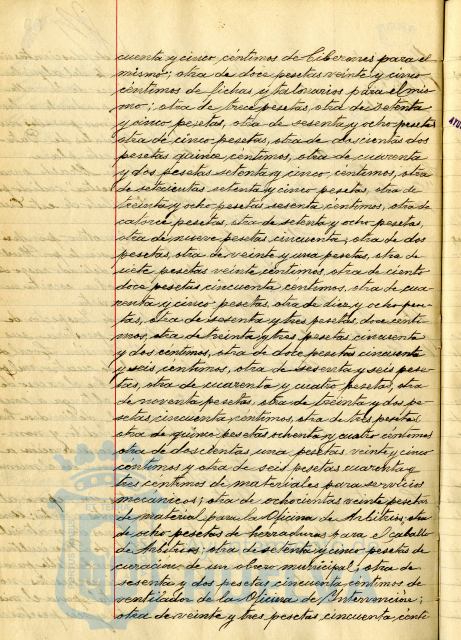 cuenta y cinco céntimos de Cibermes para el
mismo; otra de doce pesetas veinte y cinco
céntimos de fichas y talonarios para el mis-
mo; otra de trece pesetas, otra de setenta
y cinco pesetas, otra de sesenta y ocho pesetas
otra de cinco pesetas, otra de doscientas dos
pesetas quince centimos, otra de cuarenta
y dos pesetas setenta y cinco centimos, otra
de setecientas setenta y cinco pesetas, otra de
treinta y ocho pesetas sesenta centimos, otra de
catorce pesetas, otra de setenta y ocho pesetas,
otra de nueve pesetas cincuenta; otra de dos
pesetas, otra de veinte y una pesetas, otra de
siete pesetas veinte centimos, otra de ciento
doce pesetas cincuenta centimos, otra de cua-
renta y cinco pesetas, otra de diez y ocho pese-
tas, otra de sesenta y tres pesetas, doce centi-
mos, otra de treinta y tres pesetas cincuenta
y dos centimos, otra de doce pesetas cincuenta
y seis centimos, otra de sesenta y seis pese-
tas, otra de cuarenta y cuatro pesetas, otra
de noventa pesetas, otra de treinta y dos pe-
setas, cincuenta centimos, otra de tres pesetas
otra de quince pesetas ochenta y cuatro centimos
otra de doscientas una pesetas veinte y cinco
centimos y otra de seis pesetas cuarenta y
tres centimos de materiales para servicios
mecánicos; otra de ochocientas veinte pesetas
de material para la Oficina de Arbitrios; otra
de ocho pesetas de herraduras para el caballo
de Arbitrios; otra de setenta y cinco pesetas de
curacion de un obrero municipal; otra de
sesenta y dos pesetas cincuenta centimos de
ventilador de la Oficina de Intervencion;
otra de veinte y tres pesetas cincuenta centi